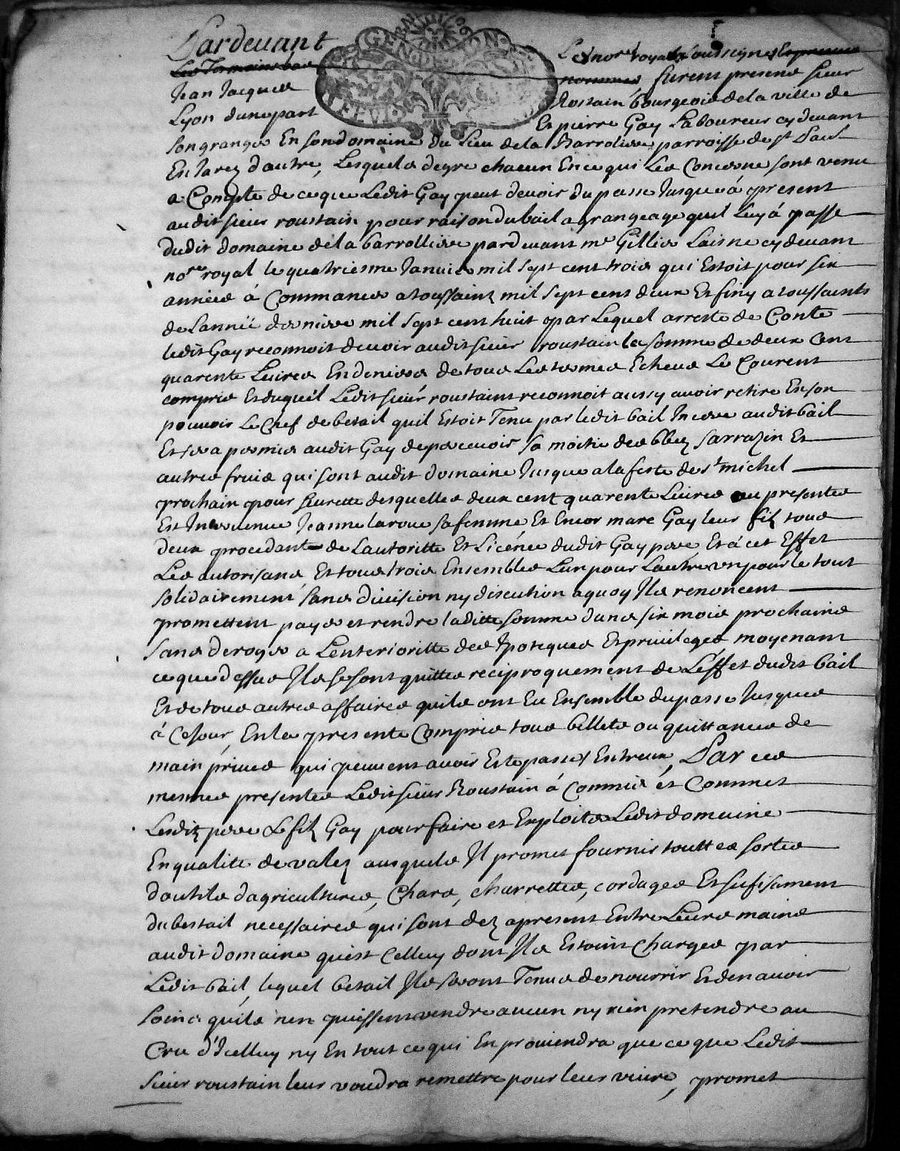 Pardevant Le nore royal Soussigné
furent presens Sieur
Jean Jacques Rostain bourgeois de la ville de
Lyon dune part Et pierre Gay Laboureur cy devant
son granger En son domaine du Lieu de la Barroliere parroisse de st Paul
En Jarez d'autre, Lesquels de gre chacun En ce qui Les Concerne sont venu
a Compte de ce que Ledit Gay peut devoir du passe Jusques à present
audit sieur roustain pour raison du bail a grangeage quil Luy à passe
dudit domaine de la barrolliere pardevant me Gillier Laisne cy devant
nore royal le quatriesme Janvier mil sept cent trois qui Estoit pour six
années à Commancer a toussaint mil sept cens deux Et finy a toussaints
de Lanneé derniere mil sept cent huit par Lequel arreste de Conte
ledit Gay reconnoit devoir audit sieur roustain la somme de deux cent
quarente Livres En deniers de tous Les termes Echeus Le Courent
compris Et duquel Ledit sieur roustain reconnoit aussy avoir retire En son
pouvoir Le Chef de bétail quil Estoit Tenu par ledit bail Insere audit bail
Et sera permis audit Gay de percevoir Sa moitie des blez Sarrazin Et
autres fruis qui sont audit domaine Jusque a la feste de st michel
prochain pour Surette desquelles deux cent quarente Livres au presentes
Est Intervenue Jeanne laroue sa femme Et Encor marc Gay leur filz tous
deux procedants de Lautoritte Et Licence dudit Gay pere Et à cet Effet
Les autorisans Et tous trois Ensembles Lun pour Lautre un pour le tout
solidairement sans division ny discution a quoy Ils renoncent
promettent payer et rendre laditte somme dans six mois prochains
sans deroger a Lenterioritte des Ipoteques Et privilages moyenant
ce que dessus Ils se sont quittes réciproquement de L'effet dudit bail
Et de tous autres affaires quils ont Eu Ensemble du passe Jusques
à Ce Jour, En la presente Compris tous billets ou quittances de
main privee qui peuvent avoir Este passes Entreux, Par ces
mesmes presentes Ledit sieur Roustain à Commis et Commet
Lesditz pere Et filz Gay pour faire et Exploiter Ledit domaine
En qualite de valez ausquels Il promet fournir touttes sortes
doutils dagriculture, Chars, charrettes, cordages Et sufisament
du bestail necessaires qui sont dez apresent Entre Leurs mains
audit domaine quest Celluy dont Ils Estoint Charges par
Ledit bail lequel betail Ils seront Tenus de nourrir Et den avoir
soin quils nen puissent vendre aucun ny rien pretendre au
Cru d'Icelluy ny En tout ce qui En proviendra que ce que Ledit
Sieur roustain leur voudra remettre pour leur vivre, promet